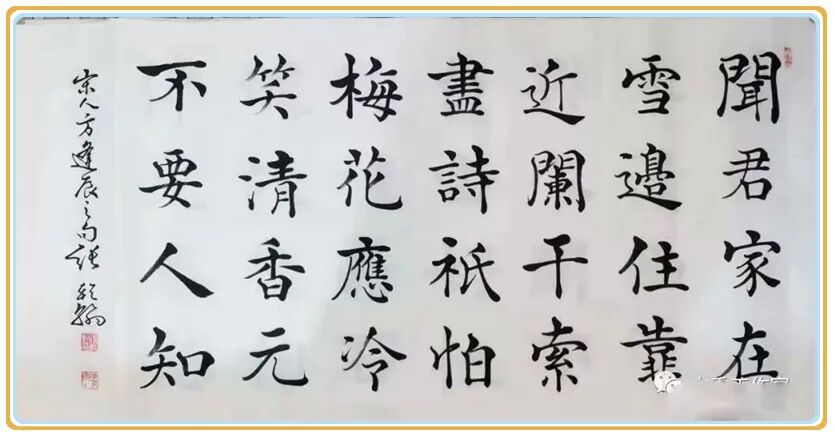 聞君家在
雪邊住靠
近闌干索
盡詩祇怕
梅花應冷
笑清香元
不要人知
宋人方逢辰之句